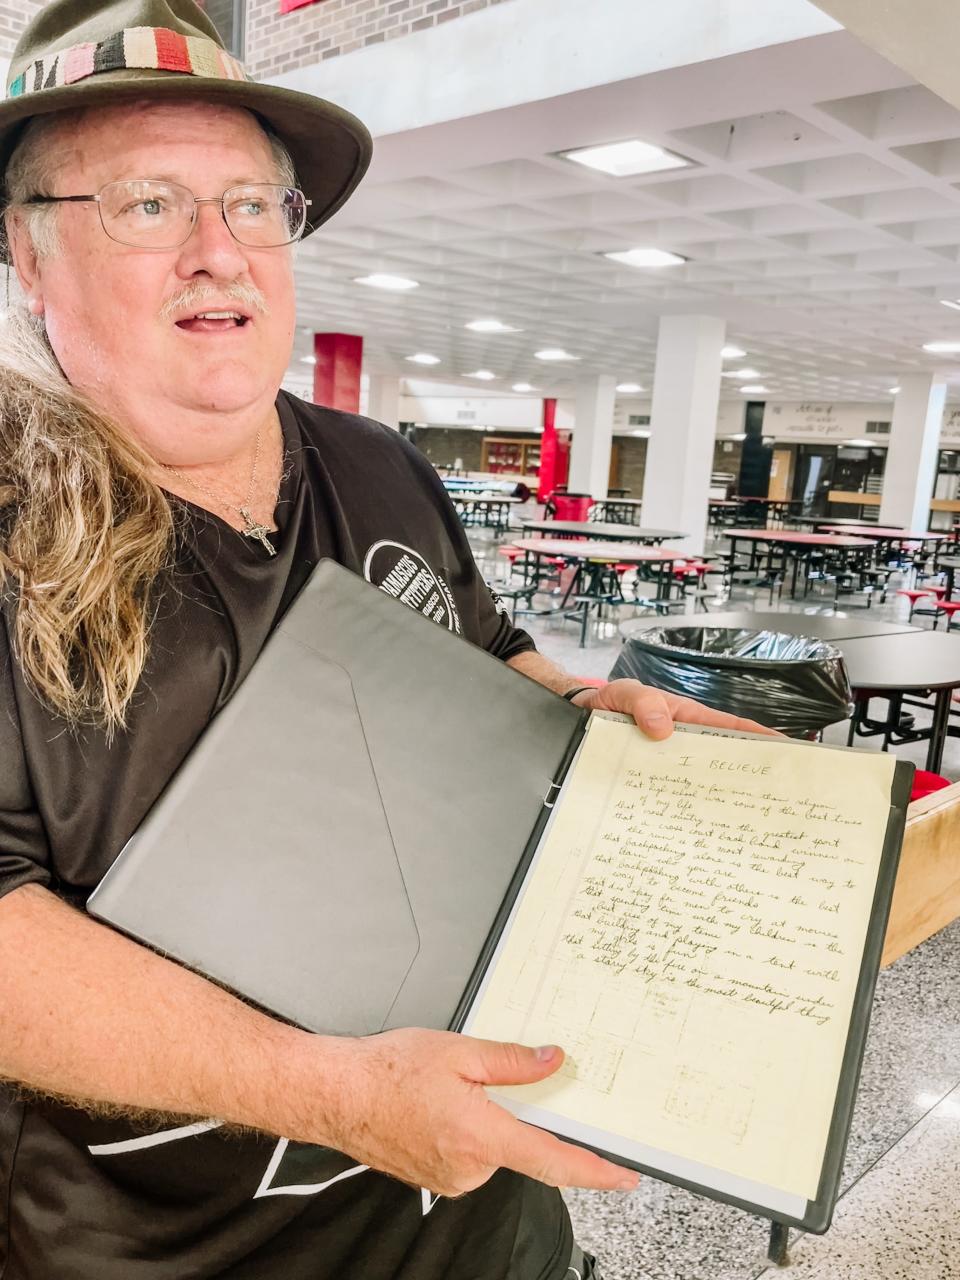 DAMASCUS
OUTFITTERS
I BELIEVE
that spirituality is far more than religion
that high school was some of the best times
of my life
that cross country was the greatest sport
that a cross court back hand winner on
the run is the most rewarding
that backpacking alone is the best way to
learn who you are
that backpacking with others is the best
way to become friends
that it is okay for men to cry at movies
that spending time with my children is the
best use of my time
that building and playing in a tent with
my girls is fun
that sitting by the fire on a mountain under
a starry sky is the most beautiful thing